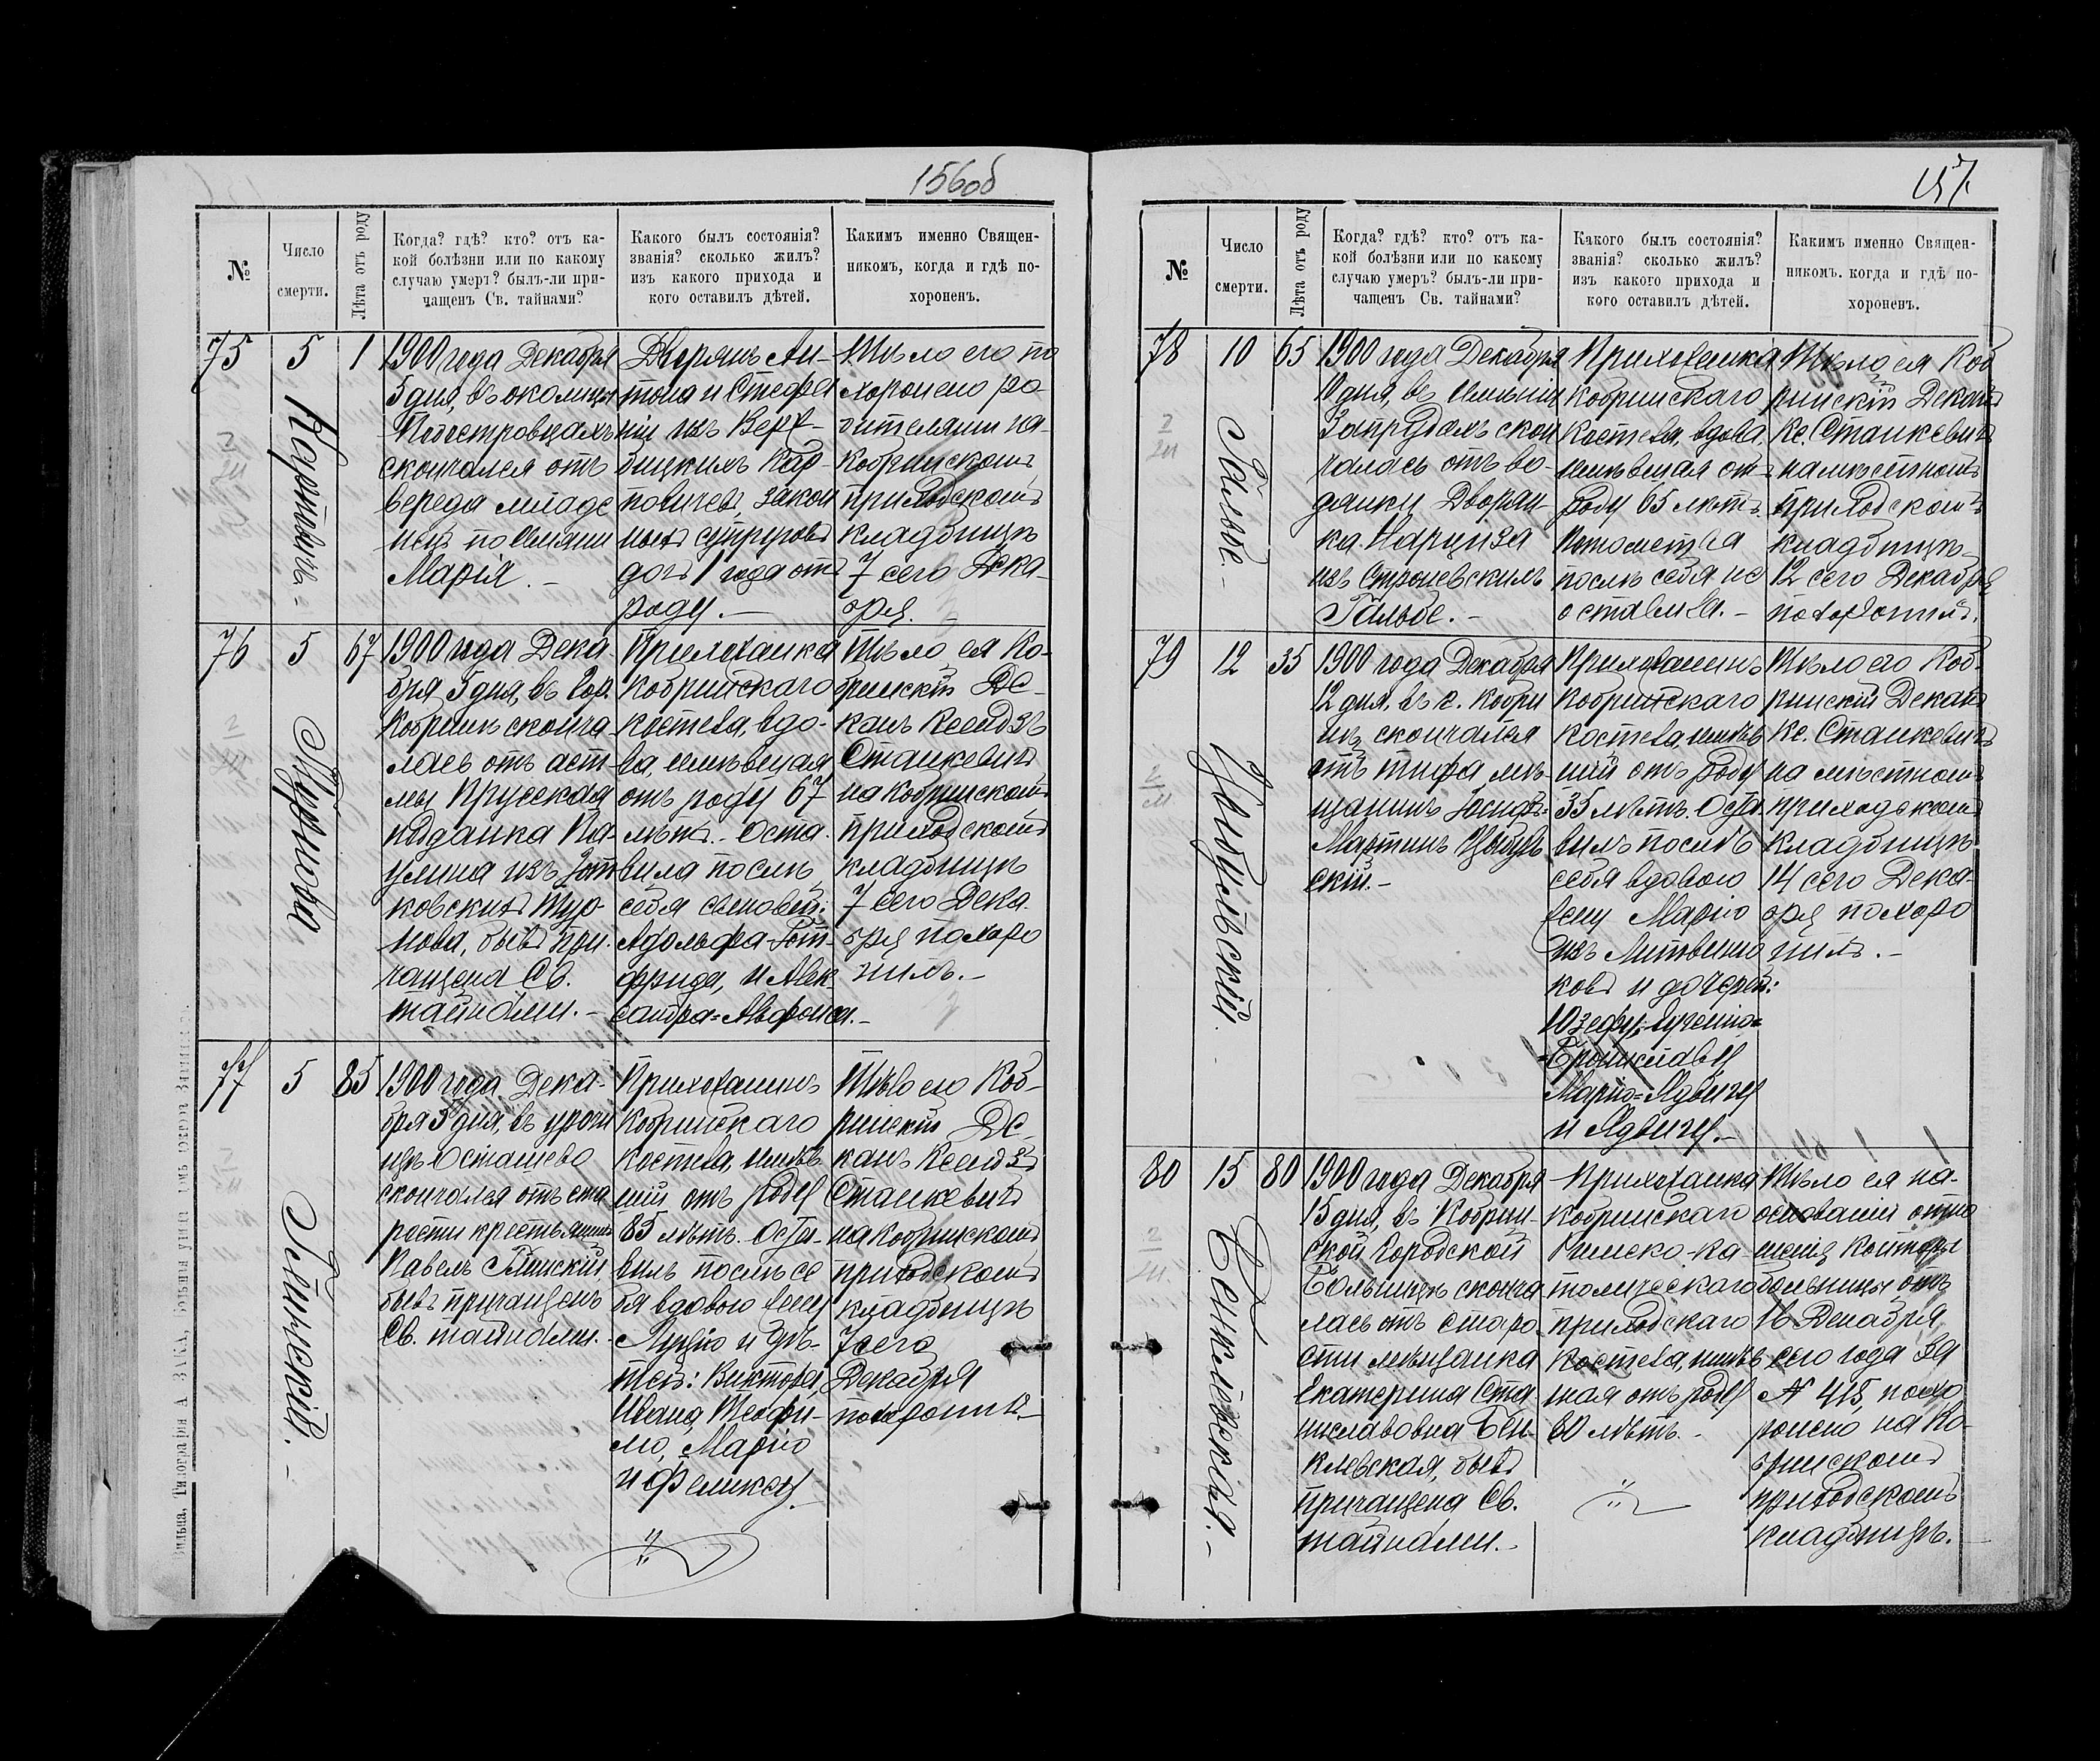 156об
№
Число
смерти.
Лѣта отъ роду
Когда? гдѣ? кто? отъ ка-
кой болѣзни или по какому
случаю умеръ? былъ-ли при-
чащенъ Св. тайнами?
Какого былъ состоянія?
званія? сколько жилъ?
изъ какого прихода и
кого оставилъ дѣтей.
Какимъ именно Священ-
никомъ, когда и гдѣ по-
хороненъ.
75
5
1
Карповичъ
1900 года Декабря
5 дня, въ околицѣ
скончался отъ
вереда младе
нецъ по имени
Марія.
Дворянъ Ан-
тона и Стефа
ніи изъ Верж-
бицкихъ Кар-
повичей, закон
ныхъ супруговъ
дочь 1 года отъ
роду.
Тѣло его по
хоронено ро-
дителями на
Кобринскомъ
приходскомъ
кладбищѣ
7 сего Дека-
бря.
76
5
67
Турнова
1900 года Дека
бря 5 дня, въ гор.
Кобринѣ сконча
лась отъ аст-
мы Прусская
подданка Па
улина изъ
ковскихъ Тур
нова, бывъ при
чащена Св.
тайнами.
Прихожанка
Кобринскаго
костела, вдо-
ва, имѣвшая
отъ роду 67
лѣтъ. Оста
вила послѣ
себя сыновей:
Адольфа-Гот-
фрида, и Алек
сандра=Альфонса.
Тѣло ея Ко-
бринскій Де-
канъ Ксендзъ
Станкевичъ
на Кобринскомъ
приходскомъ
кладбищѣ
7 сего Дека
бря похоро
нилъ.
77
5
85
Глинскій.
1900 года Дека-
бря 5 дня, въ урочи
щѣ Осташево
скончался отъ ста
рости крестьянинъ
Павелъ Глинскій
бывъ причащенъ
Св. тайнами.
Прихожанинъ
Кобринскаго
костела, имѣв
шій отъ роду
85 лѣтъ. Оста-
вилъ послѣ се
бя вдовою жену
Луцію и дѣ-
тей: Виктора,
Ивана, Теофи-
лю, Марію
и Феликсу.
Тѣло его Коб-
ринскій Де-
канъ Ксендзъ
Станкевичъ
на Кобринскомъ
приходскомъ
кладбищѣ
7 сего
Декабря
похоронилъ.
Вильна, Типографія А. ЗАКА,
157.
№
Число
смерти.
Лѣта отъ роду
Когда? гдѣ? кто? отъ ка-
кой болѣзни или по какому
случаю умеръ? былъ-ли при-
чащенъ Св. тайнами?
Какого былъ состоянія?
званія? сколько жилъ?
изъ какого прихода и
кого оставилъ дѣтей.
Какимъ именно Священ-
никомъ. когда и гдѣ по-
хороненъ.
78
10
65
Гальве
1900 года Декабря
10 дня, въ имѣніи
Запрудахъ скон
чалась отъ во-
дянки Дворян-
ка Нарциза
изъ Строчевскихъ
Гальве.
Прихожанка
Кобринскаго
костела, вдова,
имѣвшая отъ
роду 65 лѣтъ.
Потомства
послѣ себя не
оставила.
Тѣло ея Коб
ринскій Деканъ
Кс. Станкевичъ
на мѣстномъ
приходскомъ
кладбищѣ
12 сего Декабря
похоронилъ.
79
12
35
Цыбульскій
1900 года Декабря
12 дня, въ г. Кобри
нѣ скончался
отъ тифа мѣ-
щанинъ Іосифъ-
Мартинъ Цыбуль
скій.
Прихожанинъ
Кобринскаго
костела, имѣв
шій отъ роду
35 лѣтъ. Оста
вилъ послѣ
себя вдовою
жену Марію
изъ Литвиню
ковъ и дочерей:
Юзефу,
Брониславу
Марію=Ядвигу
и Ядвигу.
Тѣло его Коб-
ринскій Деканъ
Кс. Станкевичъ
на мѣстномъ
приходскомъ
кладбищѣ
14 сего Дека
бря похоро
нилъ.
80
15
80
Бенклевская.
1900 года Декабря
15 дня, въ Кобрин-
ской Городской
Больницѣ сконча
лась отъ старо
сти мѣщанка
Екатерина Ста
ниславовна Бен-
клевская, бывъ
причащена Св.
тайнами.
Прихожанка
Кобринскаго
Римско-ка-
толическаго
приходскаго
костела, имѣв
шая отъ роду
80 лѣтъ.
Тѣло ея на
основаніи отно
шенія Конторы
больницы отъ
16 Декабря
сего года за
№ 418, похо
ронено на Ко-
бринскомъ
приходскомъ
кладбищѣ.